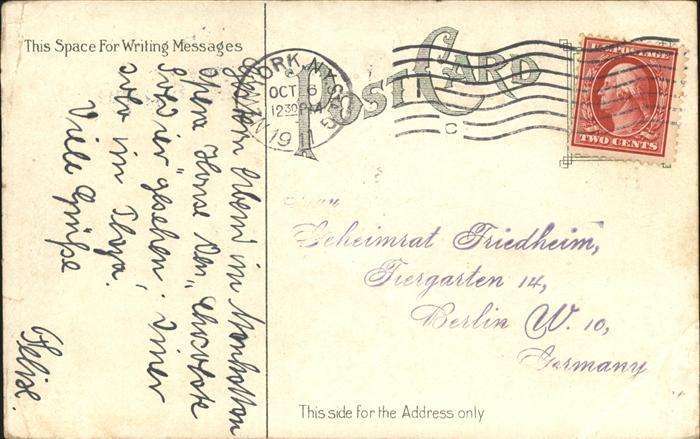 This Space For Writing Messages
POST CARD
YORK, N.Y.
OCT 6
12 30 PM
19
U.S. POSTAGE
TWO CENTS
Gestern Abend im Manhattan
Opera House den "Chocolate
Soldier" gesehen. Diner
Viele Grüße
Felix.
Geheimrat Friedheim,
Tiergarten 14,
Berlin W. 10,
Germany
This side for the Address only